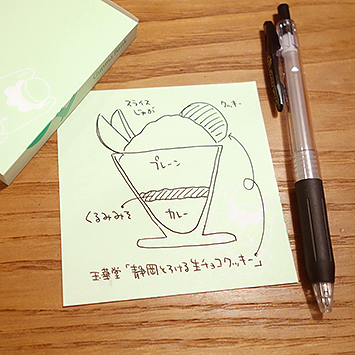 スライス
じゃが
クッキー
プレーン
くるみみそ
カレー
玉華堂「静岡とろける生チョコクッキー」